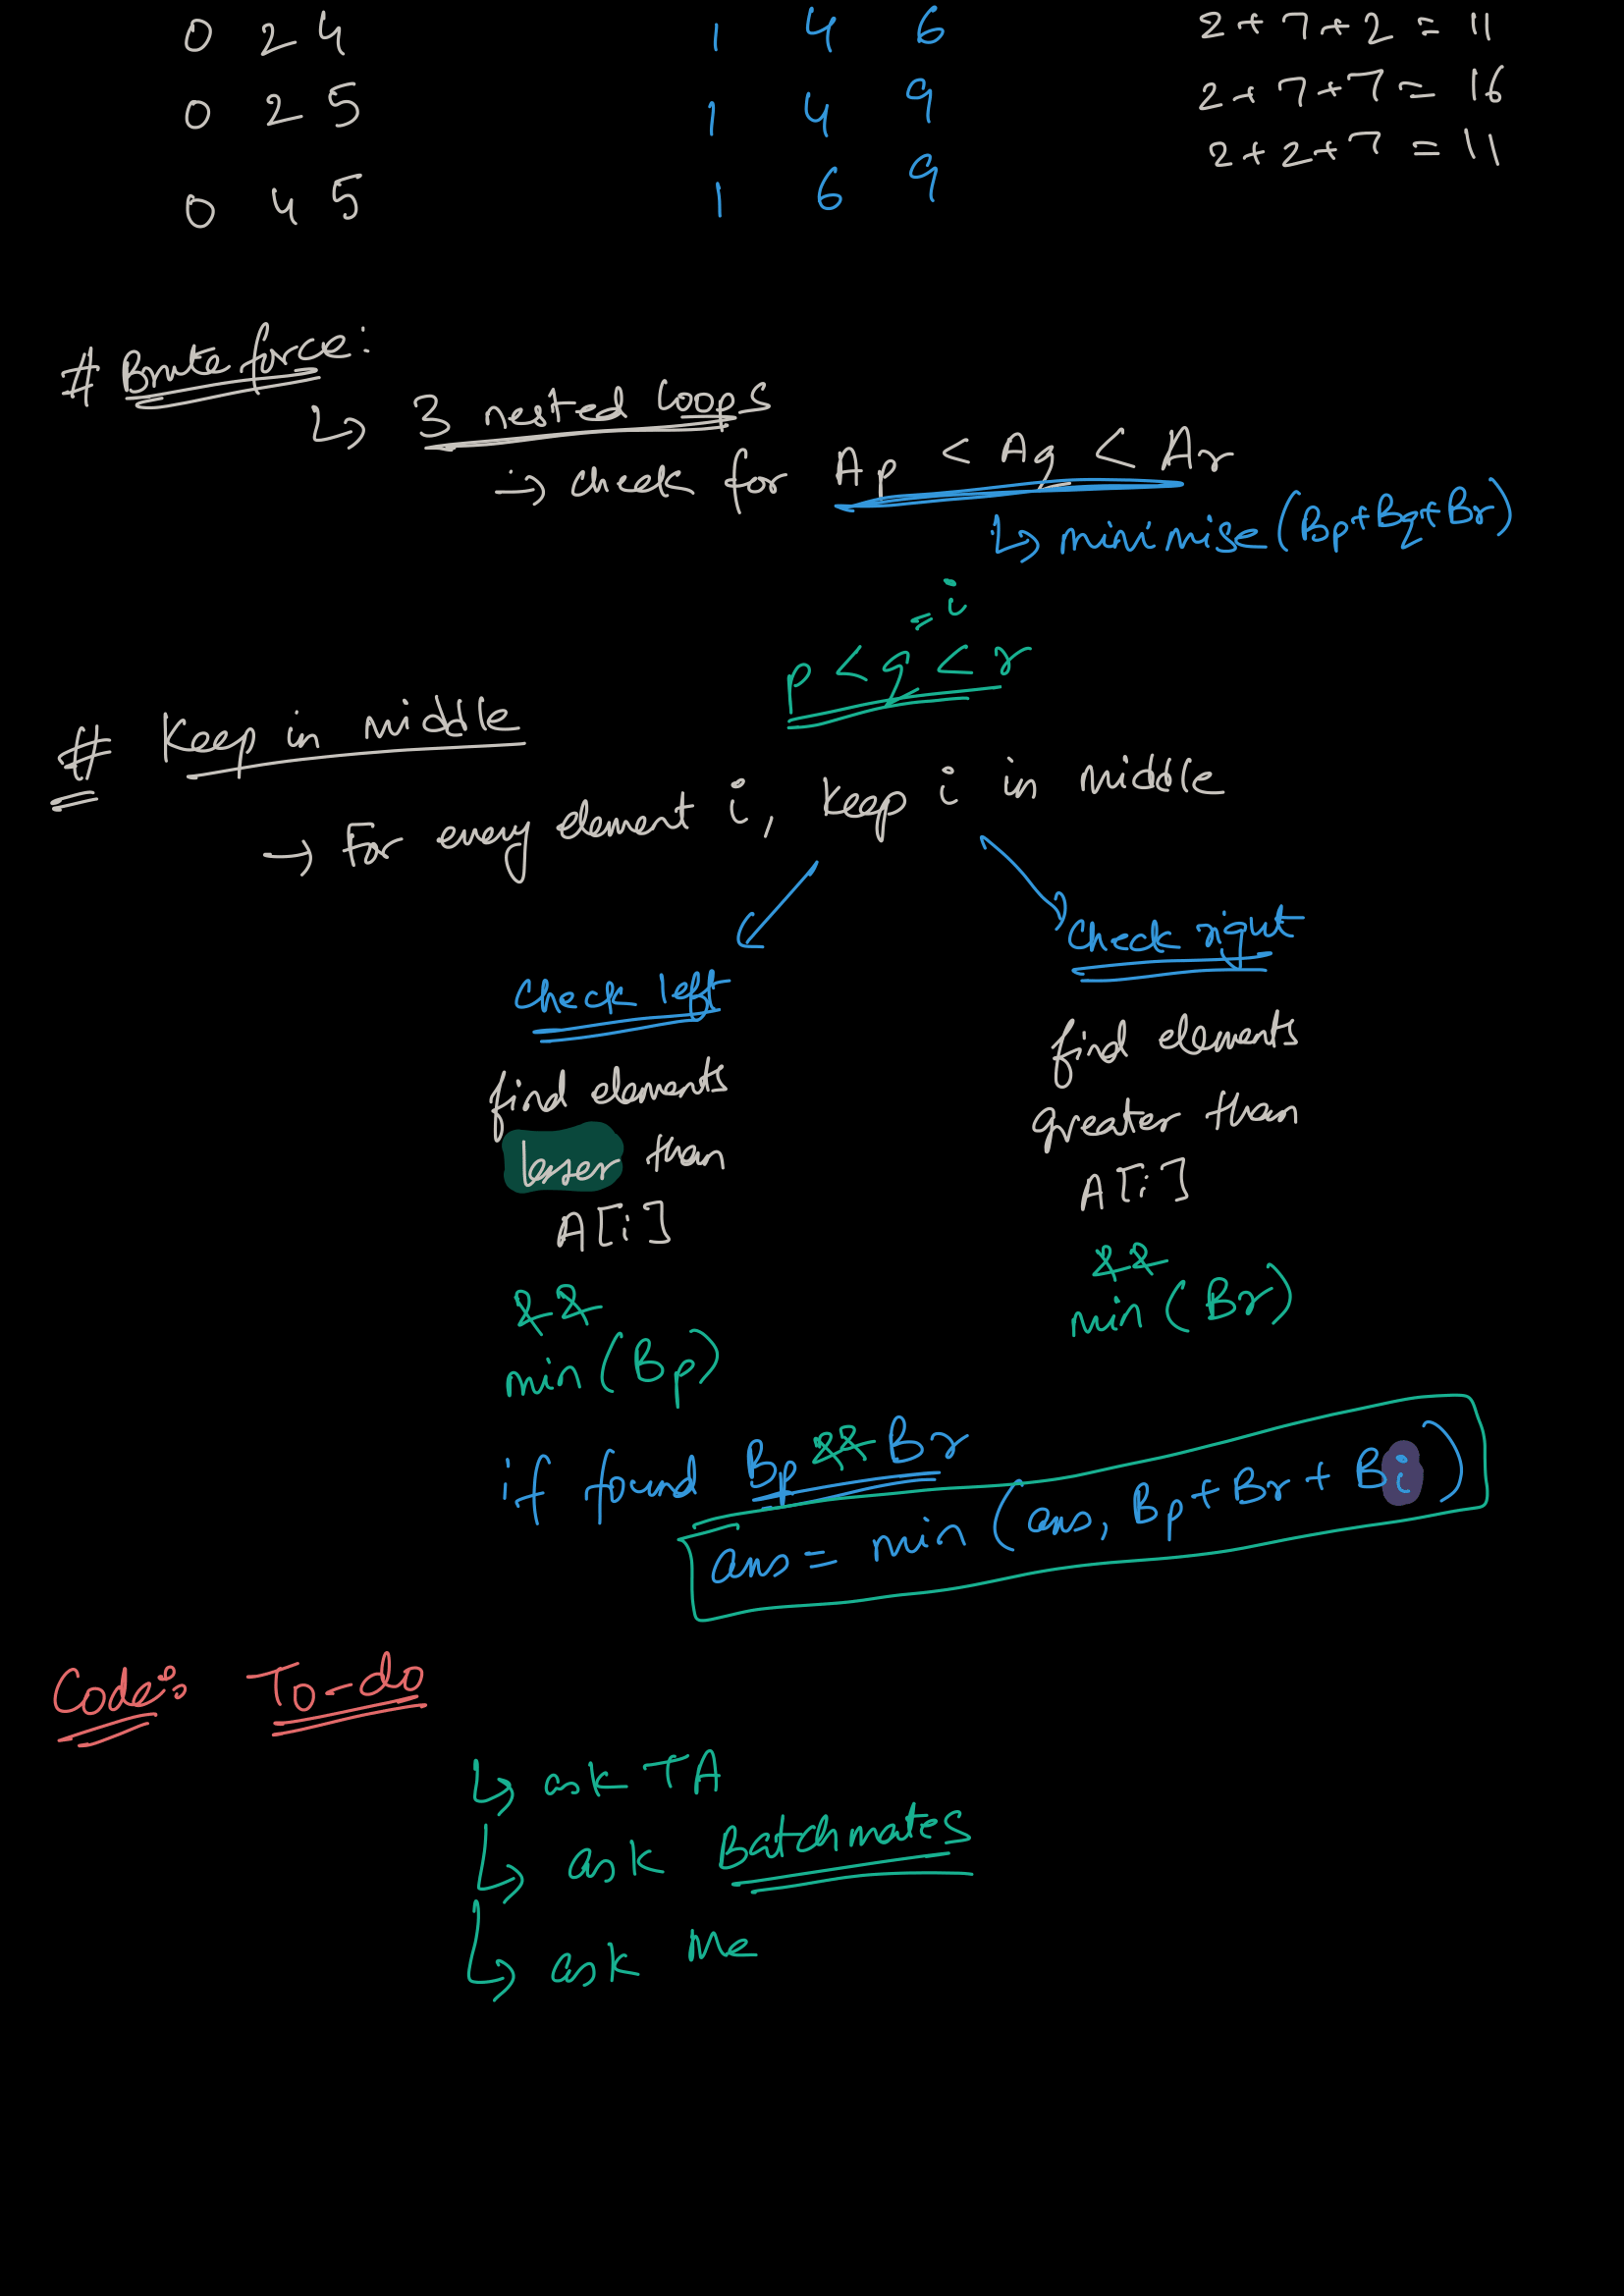 0 2 4 1 4 6 2+7+2 = 11
0 2 5 1 4 9 2+7+7 = 16
0 4 5 1 6 9 2+2+7 = 11
# Brute force:
↳ 3 nested loops
→ check for Ap < Aq < Ar
↳ minimise (Bp+Bq+Br)
= i
p < q < r
# Keep in middle
→ For every element i, keep i in middle
check left
find elements
lesser than
A[i]
&&
min (Bp)
check right
find elements
greater than
A[i]
&&
min (Br)
if found Bp && Br
ans = min (ans, Bp + Br + Bi)
Code: To-do
↳ ask TA
↳ ask Batchmates
↳ ask Me